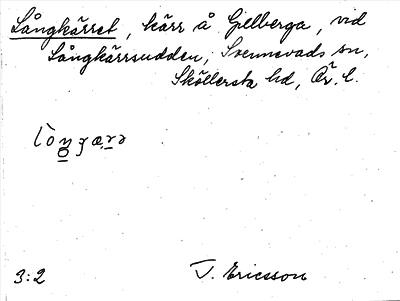 Långkärret, kärr å Gillberga, vid
Långkärrsudden, Svennevads sn,
Sköllersta hd, Ör. l.
3:2 T. Ericsson